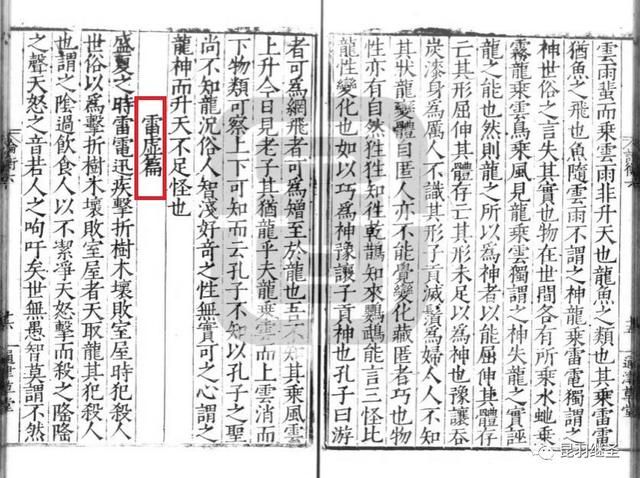 雲雨輩而乘雲雨非升天也龍魚之類也其乘雷電
猶魚之飛也魚隨雲雨不謂之神龍乘雷電獨謂之
神世俗之言失其實也物在世間各有所乘水虵乘
霧龍乘雲鳥乘風見龍乘雲獨謂之神失龍之實誣
龍之能也然則龍之所以為神者以能屈伸其體存
亡其形屈伸其體存亡其形未足以為神也豫讓吞
炭漆身為厲人不識其形子貢滅鬚為婦人人不知
其狀龍變體自匿人亦不能覺變化藏匿者巧也物
性亦有自然狌狌知往乾鵲知來鸚鵡能言三怪比
龍性變化也如以巧為神豫讓子貢神也孔子曰游
者可為網飛者可為矰至於龍也吾不知其乘風雲
上升今日見老子其猶龍乎夫龍乘雲而上雲消而
下物類可察上下可知而云孔子不知以孔子之聖
尚不知龍況俗人智淺好奇之性無實可之心謂之
龍神而升天不足怪也
雷虛篇
盛夏之時雷電迅疾擊折樹木壞敗室屋時犯殺人
世俗以為擊折樹木壞敗室屋者天取龍其犯殺人
也謂之陰過飲食人以不潔淨天怒擊而殺之隆隆
之聲天怒之音若人之呴吁矣世無愚智莫謂不然
通津草堂
昆羽继圣